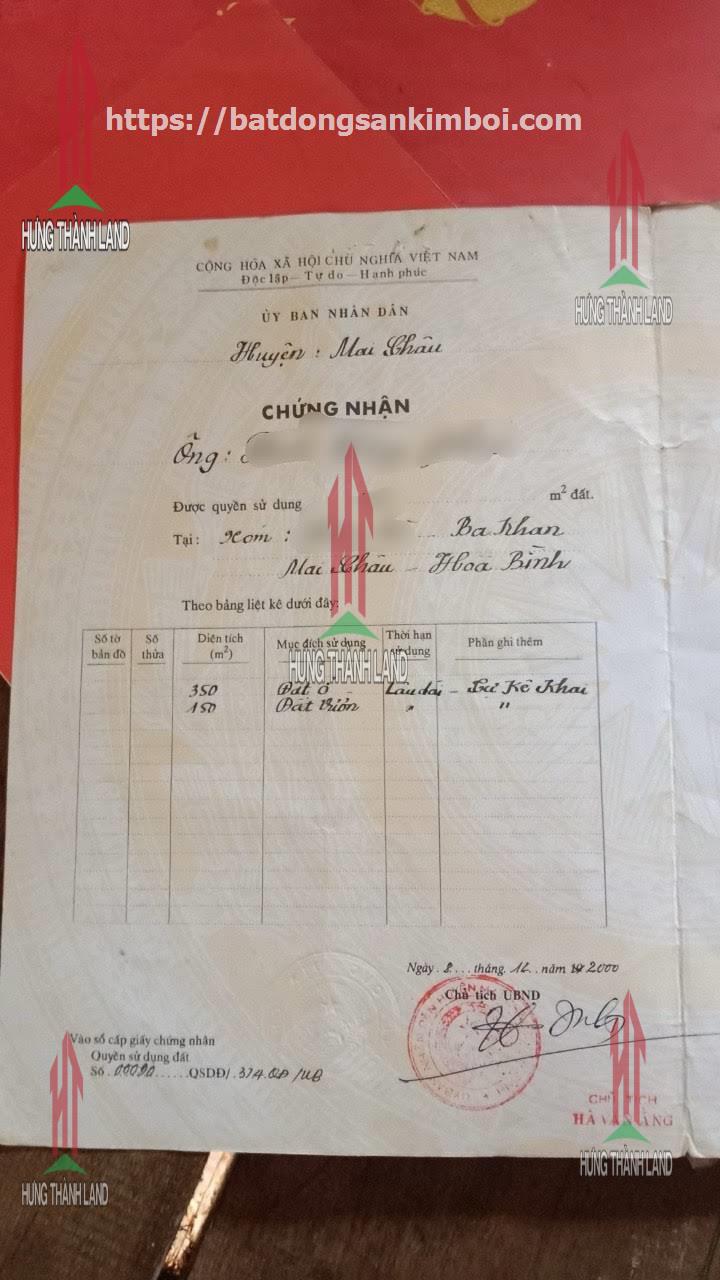 https://batdongsankimboi.com
HƯNG THÀNH LAND
HƯNG THÀNH LAND
CỘNG HÒA XÃ HỘI CHỦ NGHĨA VIỆT NAM
Độc lập – Tự do – Hạnh phúc
ỦY BAN NHÂN DÂN
Huyện: Mai Châu
CHỨNG NHẬN
Ông:
Được quyền sử dụng m² đất.
Tại: Xóm: Ba Khan
Mai Châu – Hoà Bình
Theo bảng liệt kê dưới đây:
Số tờ bản đồ Số thửa Diện tích (m²) Mục đích sử dụng Thời hạn sử dụng Phần ghi thêm
HƯNG THÀNH LAND
350 Đất Ở Lâu dài – Tự Kê Khai
150 Đất Vườn " "
Ngày. 8... tháng. 12.. năm 2000
Chủ tịch UBND
Vào sổ cấp giấy chứng nhận
Quyền sử dụng đất
Số. QSDĐ/. 374.QĐ/UB
CHỦ TỊCH
HÀ VĂN
HƯNG THÀNH LAND
HƯNG THÀNH LAND